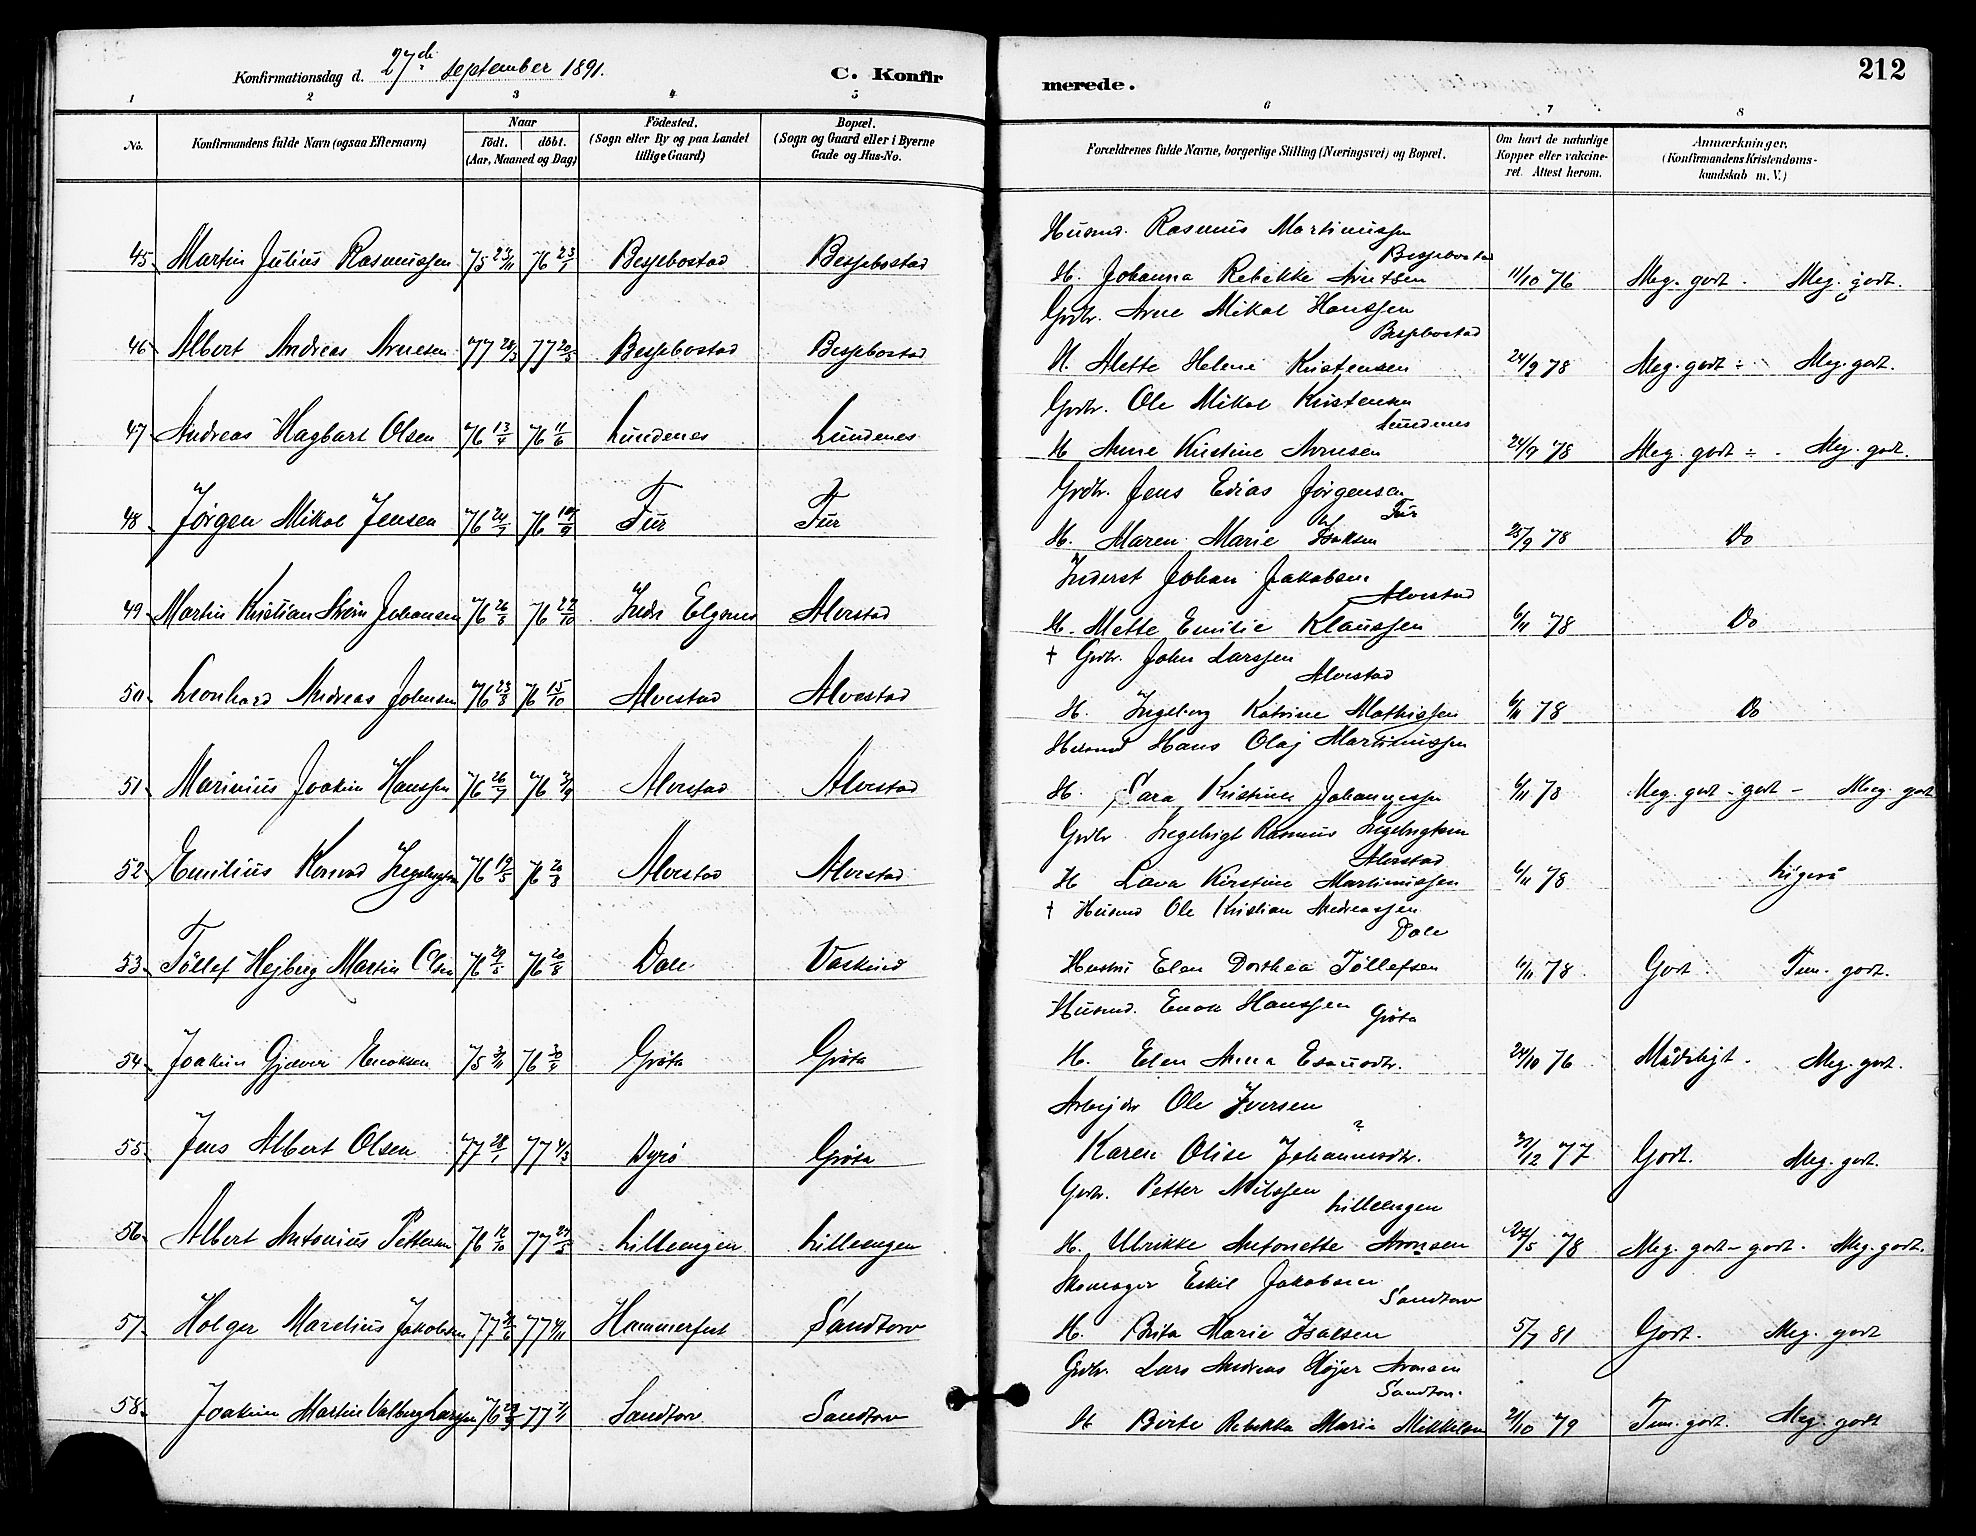 212
Konfirmationsdag d. 27de september 1891.
C. Konfirmerede.
1 2 3 4 5 6 7 8
No.
Konfirmandens fulde Navn (ogsaa Efternavn)
Naar
födt. döbt.
(Aar, Maaned og Dag)
Födested.
(Sogn eller By og paa Landet
tillige Gaard)
Bopæl.
(Sogn og Gaard eller i Byerne
Gade og Hus-No.
Forældrenes fulde Navne, borgerlige Stilling (Næringsvei) og Bopæl.
Om havt de naturlige
Kopper eller vakcine-
ret. Attest herom.
Anmærkninger.
(Konfirmandens Kristendoms-
kundskab m. V.)
Husmd. Rasmus Martinussen
Bessebostad
45. Martin Julius Rasmussen 75 23/11 76 23/1 Bessebostad Bessebostad H. Johanna Rebekke Arntsen 11/10 76 Meg. godt. Meg. godt.
Grdbr. Arne Mikal Hanssen
Bessebostad
46 Albert Andreas Arnesen 77 28/3 77 20/5 Bessebostad Bessebostad H. Mette Helene Kristensen 24/9 78 Meg. godt ÷ Meg. godt.
Grdbr. Ole Mikal Kristensen
Lundenes
47 Andreas Hagbart Olsen 76 13/4 76 11/6 Lundenes Lundenes H Anne Kirstine Arnesen 24/9 78 Meg. godt ÷ Meg. godt.
Grdbr. Jens Edias Jörgensen
Fur
48 Jörgen Mikal Jensen 76 24/7 76 Fur Fur H. Maren Marie Isaksen 25/9 78 Do
Inderst Johan Jakobsen
Alvestad
49 Martin Kristian Johansen 76 26/8 76 22/10 Indr Elgsnes Alvestad H. Mette Emilie Klaussen 6/11 78 Do
† Grdbr. John Larssen
Alvestad
50. Leonhard Andreas Johnsen 76 23/8 76 15/10 Alvestad Alvestad H. Ingeborg Katrine Mathissen 6/11 78 Do
Husmd Hans Olaj Martinussen
51. Marinius Joakim Hanssen 76 26/7 76 3/9 Alvestad Alvestad H. Sara Kristine Johannessen 6/11 78 Meg. godt - godt - Meg. godt
Grdbr. Ingebrigt Rasmus Ingebrigtsen
Alvestad
52. Emilius Konrad Ingebrigtsen 76 19/5 76 20/8 Alvestad Alvestad H Lava Kirstine Martinussen 6/11 78 Ligeså
† Husmd Ole Kristian Andreassen
Dale
53. Töllef Hejberg Martin Olsen 76 76 20/8 Dale Vaskind Hustru Elen Dorthea Töllefsen 6/11 78. Godt. Tem. godt.
Husmd. Enok Hanssen
Gröta
54. Joakim Gjæver Enoksen 75 3/11 76 Gröta Gröta H. Elen Anna Esaudtr. 24/10 76 Mådeligt. Meg. godt.
Arbejder Ole Iversen
?
55. Jens Albert Olsen 77 28/1 77 4/3 Dyrö Gröta Karen Olise Johannesdtr. 77 Godt. Meg. godt.
Grdbr. Petter Nilssen
Lilleengen
56. Albert Antonius Pettersen 76 12/10 77 Lilleengen Lilleengen H. Ulrikke Antonette Aronsen 78 Meg. godt - godt. Meg. godt.
Skomager Eskil Jakobsen
Sandtorv
57. Holger Marelius Jakobsen 77 77 4/11 Hammerfest Sandtorv H. Brita Marie Isaksen 5/7 81 Godt. Meg. godt
Grdbr. Lars Andreas Höjer Aronsen
Sandtorv.
58. Joakim Martin Valberg Larssen 76 77 Sandtorv Sandtorv H Birte Rebekka Maria Mikkelsen 21/10 79 Tem. godt. Meg. godt